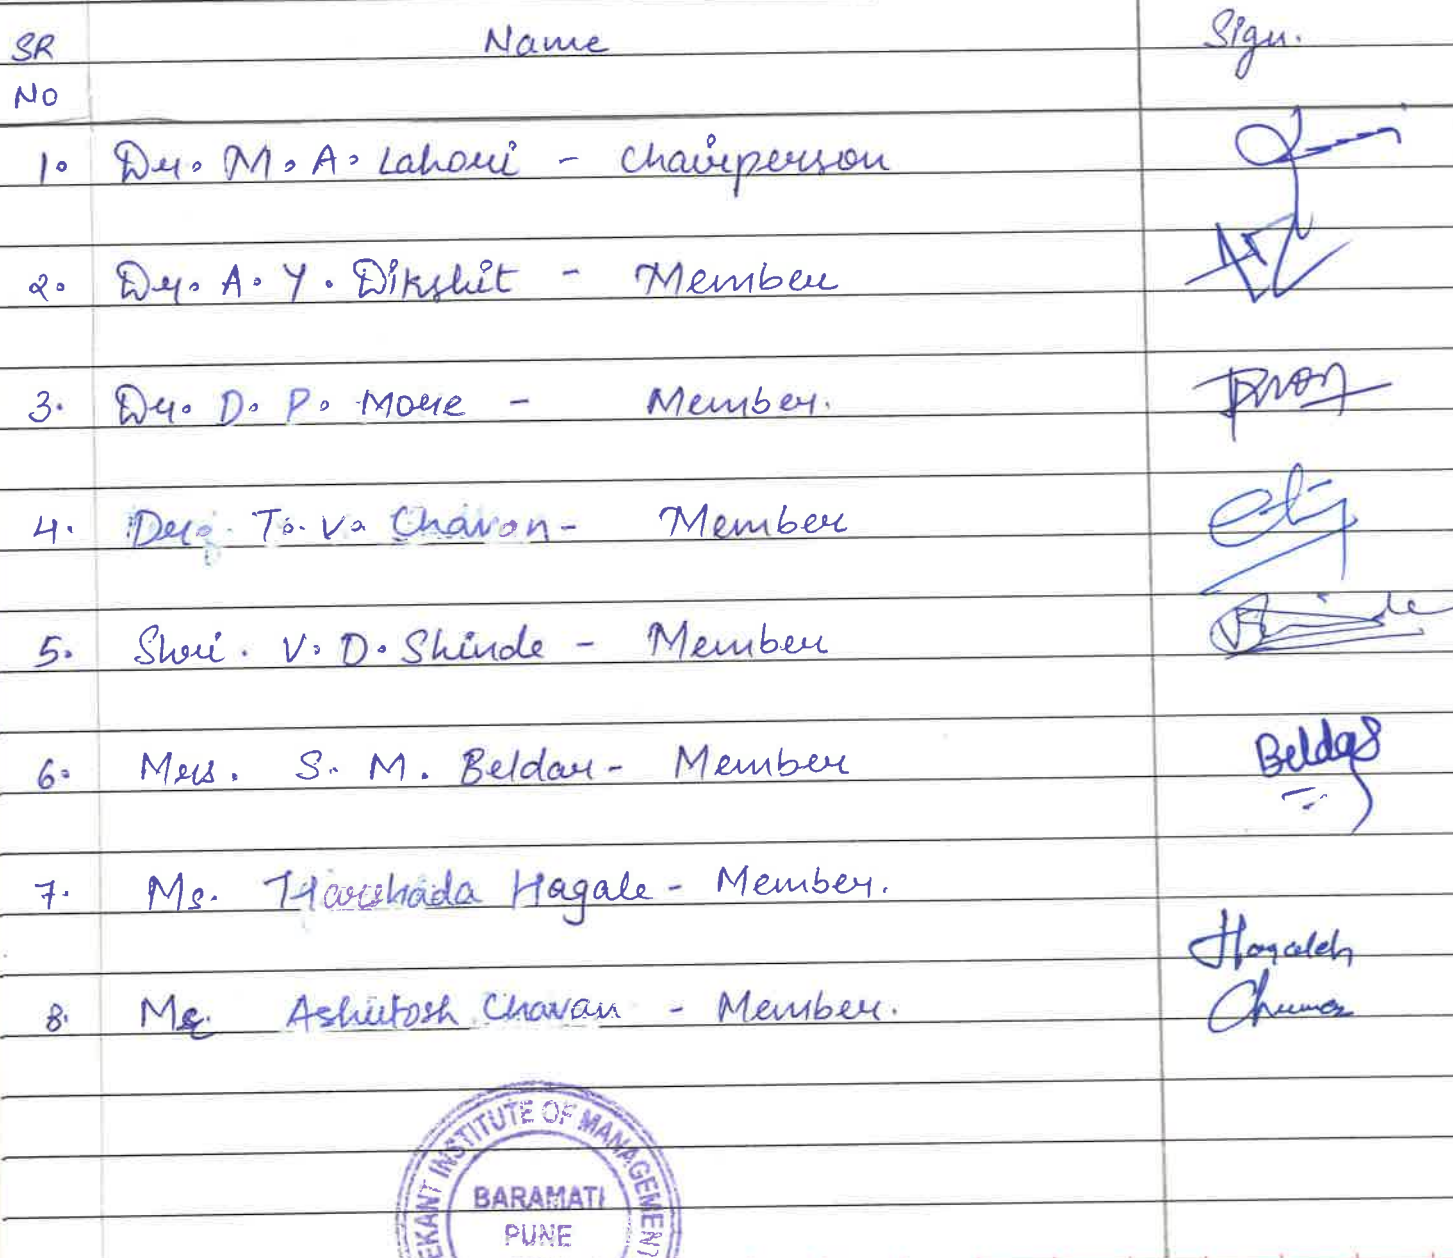 SR Name Sign.
NO
1. Dr. M. A. Lahori - Chairperson
2. Dr. A. Y. Dikshit - Member
3. Dr. D. P. More - Member.
4. Dr. T. V. Chavan - Member
5. Shri. V. D. Shinde - Member
6. Mrs. S. M. Beldar - Member Beldar
7. Ms. Harshada Hagale - Member.
8. Mr. Ashutosh Chavan - Member.
EKANT INSTITUTE OF MANAGEMENT
BARAMATI
PUNE